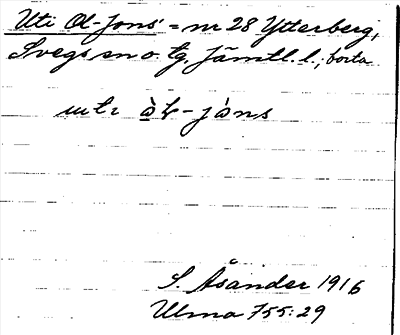 Uti Ol-Jons' = nr 28 Ytterberg,
Svegs sn o. tg. Jämtl. l.; borta
S. Åsander 1916
Ulma 755:29